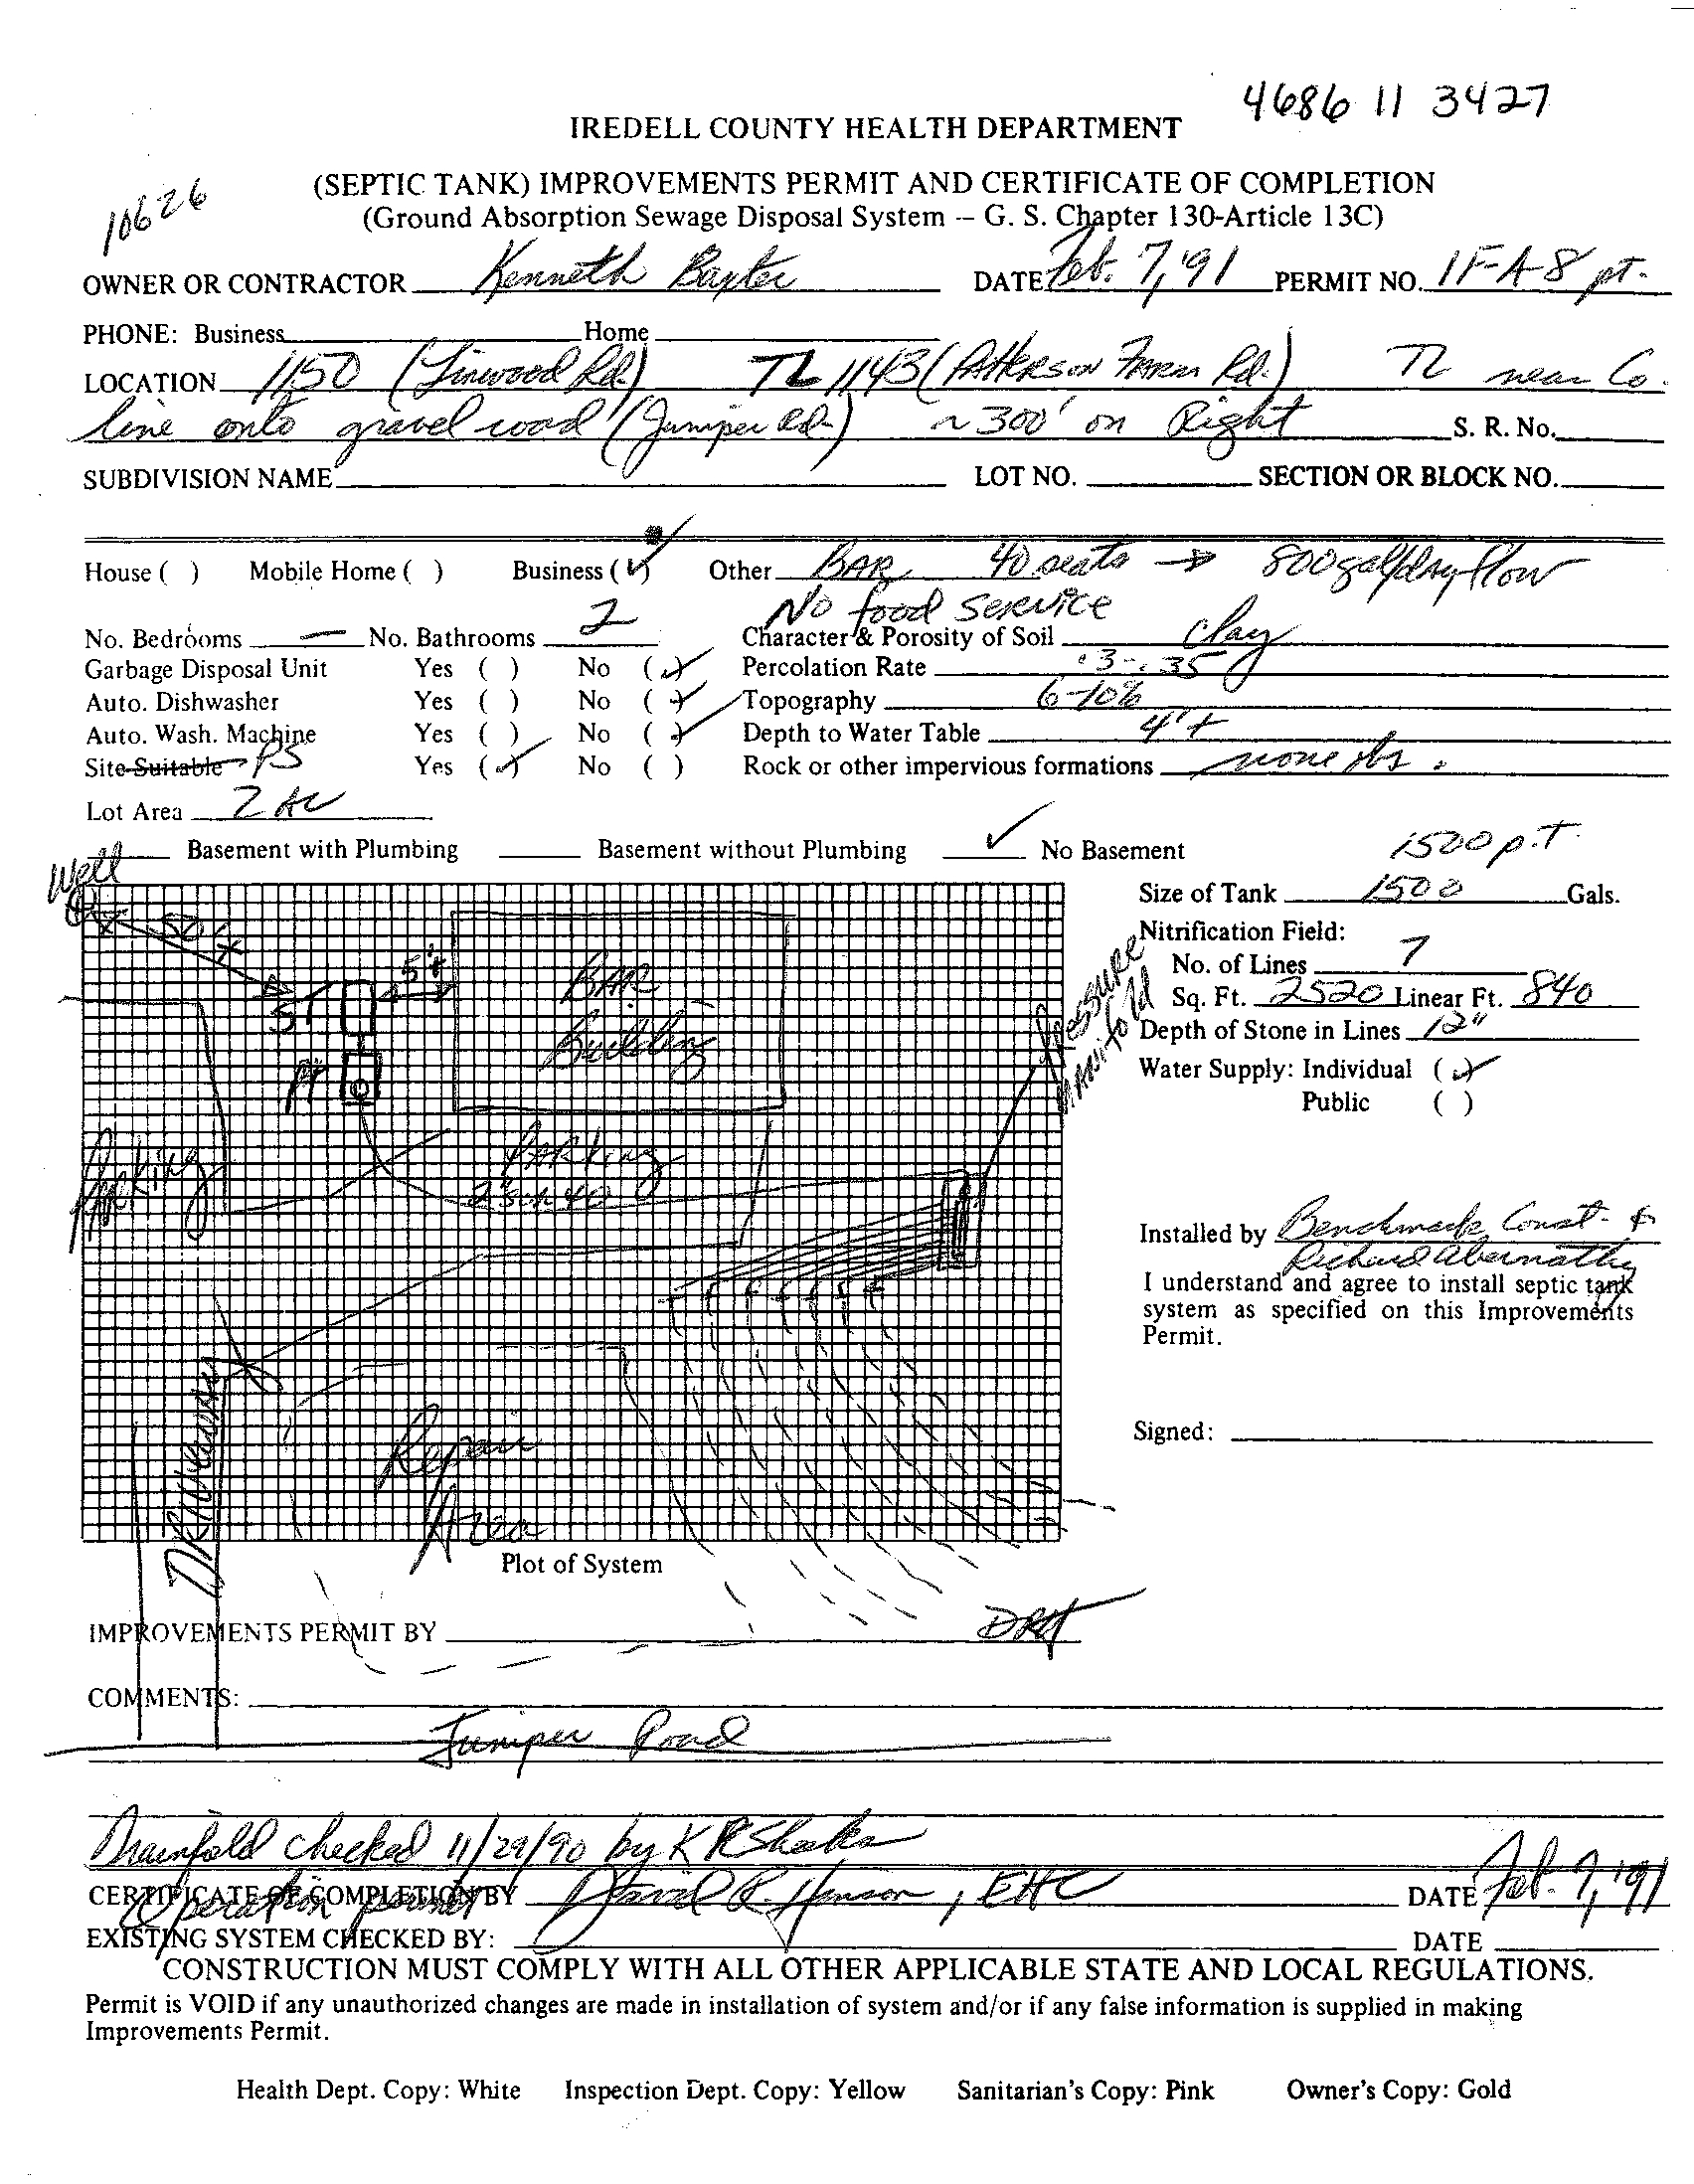 4686 11 3427
IREDELL COUNTY HEALTH DEPARTMENT
10626
(SEPTIC TANK) IMPROVEMENTS PERMIT AND CERTIFICATE OF COMPLETION
(Ground Absorption Sewage Disposal System -- G. S. Chapter 130-Article 13C)
OWNER OR CONTRACTOR Kenneth Baxter DATE Feb. 7, '91 PERMIT NO. 1F-A-8 pt.
PHONE: Business Home
LOCATION 1150 (Linwood Rd.) TL 1143 (Patterson Farm Rd.) TL near Co.
line onto gravel road (Juniper Rd.) ~ 300' on Right S. R. No.
SUBDIVISION NAME LOT NO. SECTION OR BLOCK NO.
House ( ) Mobile Home ( ) Business (✓) Other BAR 40 seats → 800 gal/day flow
No food service
No. Bedrooms — No. Bathrooms 2 Character & Porosity of Soil clay
Garbage Disposal Unit Yes ( ) No (✓) Percolation Rate .3-.35
Auto. Dishwasher Yes ( ) No (✓) Topography 6-10%
Auto. Wash. Machine Yes ( ) No (✓) Depth to Water Table 4'+
Site Suitable PS Yes (✓) No ( ) Rock or other impervious formations none obs.
Lot Area 2 AC
Basement with Plumbing Basement without Plumbing ✓ No Basement
1500 p.T.
Well
Size of Tank 1500 Gals.
50'+
Nitrification Field:
5'+
BAR
Building
No. of Lines 7
Sq. Ft. 2520 Linear Ft. 840
Pressure
Manifold
ST
Depth of Stone in Lines 12"
PT
Water Supply: Individual (✓)
Public ( )
Parking
Parking
2" sch 40
Installed by Benchmark Const. &
Richard Abernathy
I understand and agree to install septic tank
system as specified on this Improvements
Permit.
Driveway
Repair
Area
Signed:
Plot of System
IMPROVEMENTS PERMIT BY DRH
COMMENTS:
Juniper Road
Drainfield checked 11/29/90 by K R
CERTIFICATE OF COMPLETION BY David R. Hinson, EHC DATE Feb. 7, '91
Operation permit
EXISTING SYSTEM CHECKED BY: DATE
CONSTRUCTION MUST COMPLY WITH ALL OTHER APPLICABLE STATE AND LOCAL REGULATIONS.
Permit is VOID if any unauthorized changes are made in installation of system and/or if any false information is supplied in making
Improvements Permit.
Health Dept. Copy: White Inspection Dept. Copy: Yellow Sanitarian's Copy: Pink Owner's Copy: Gold